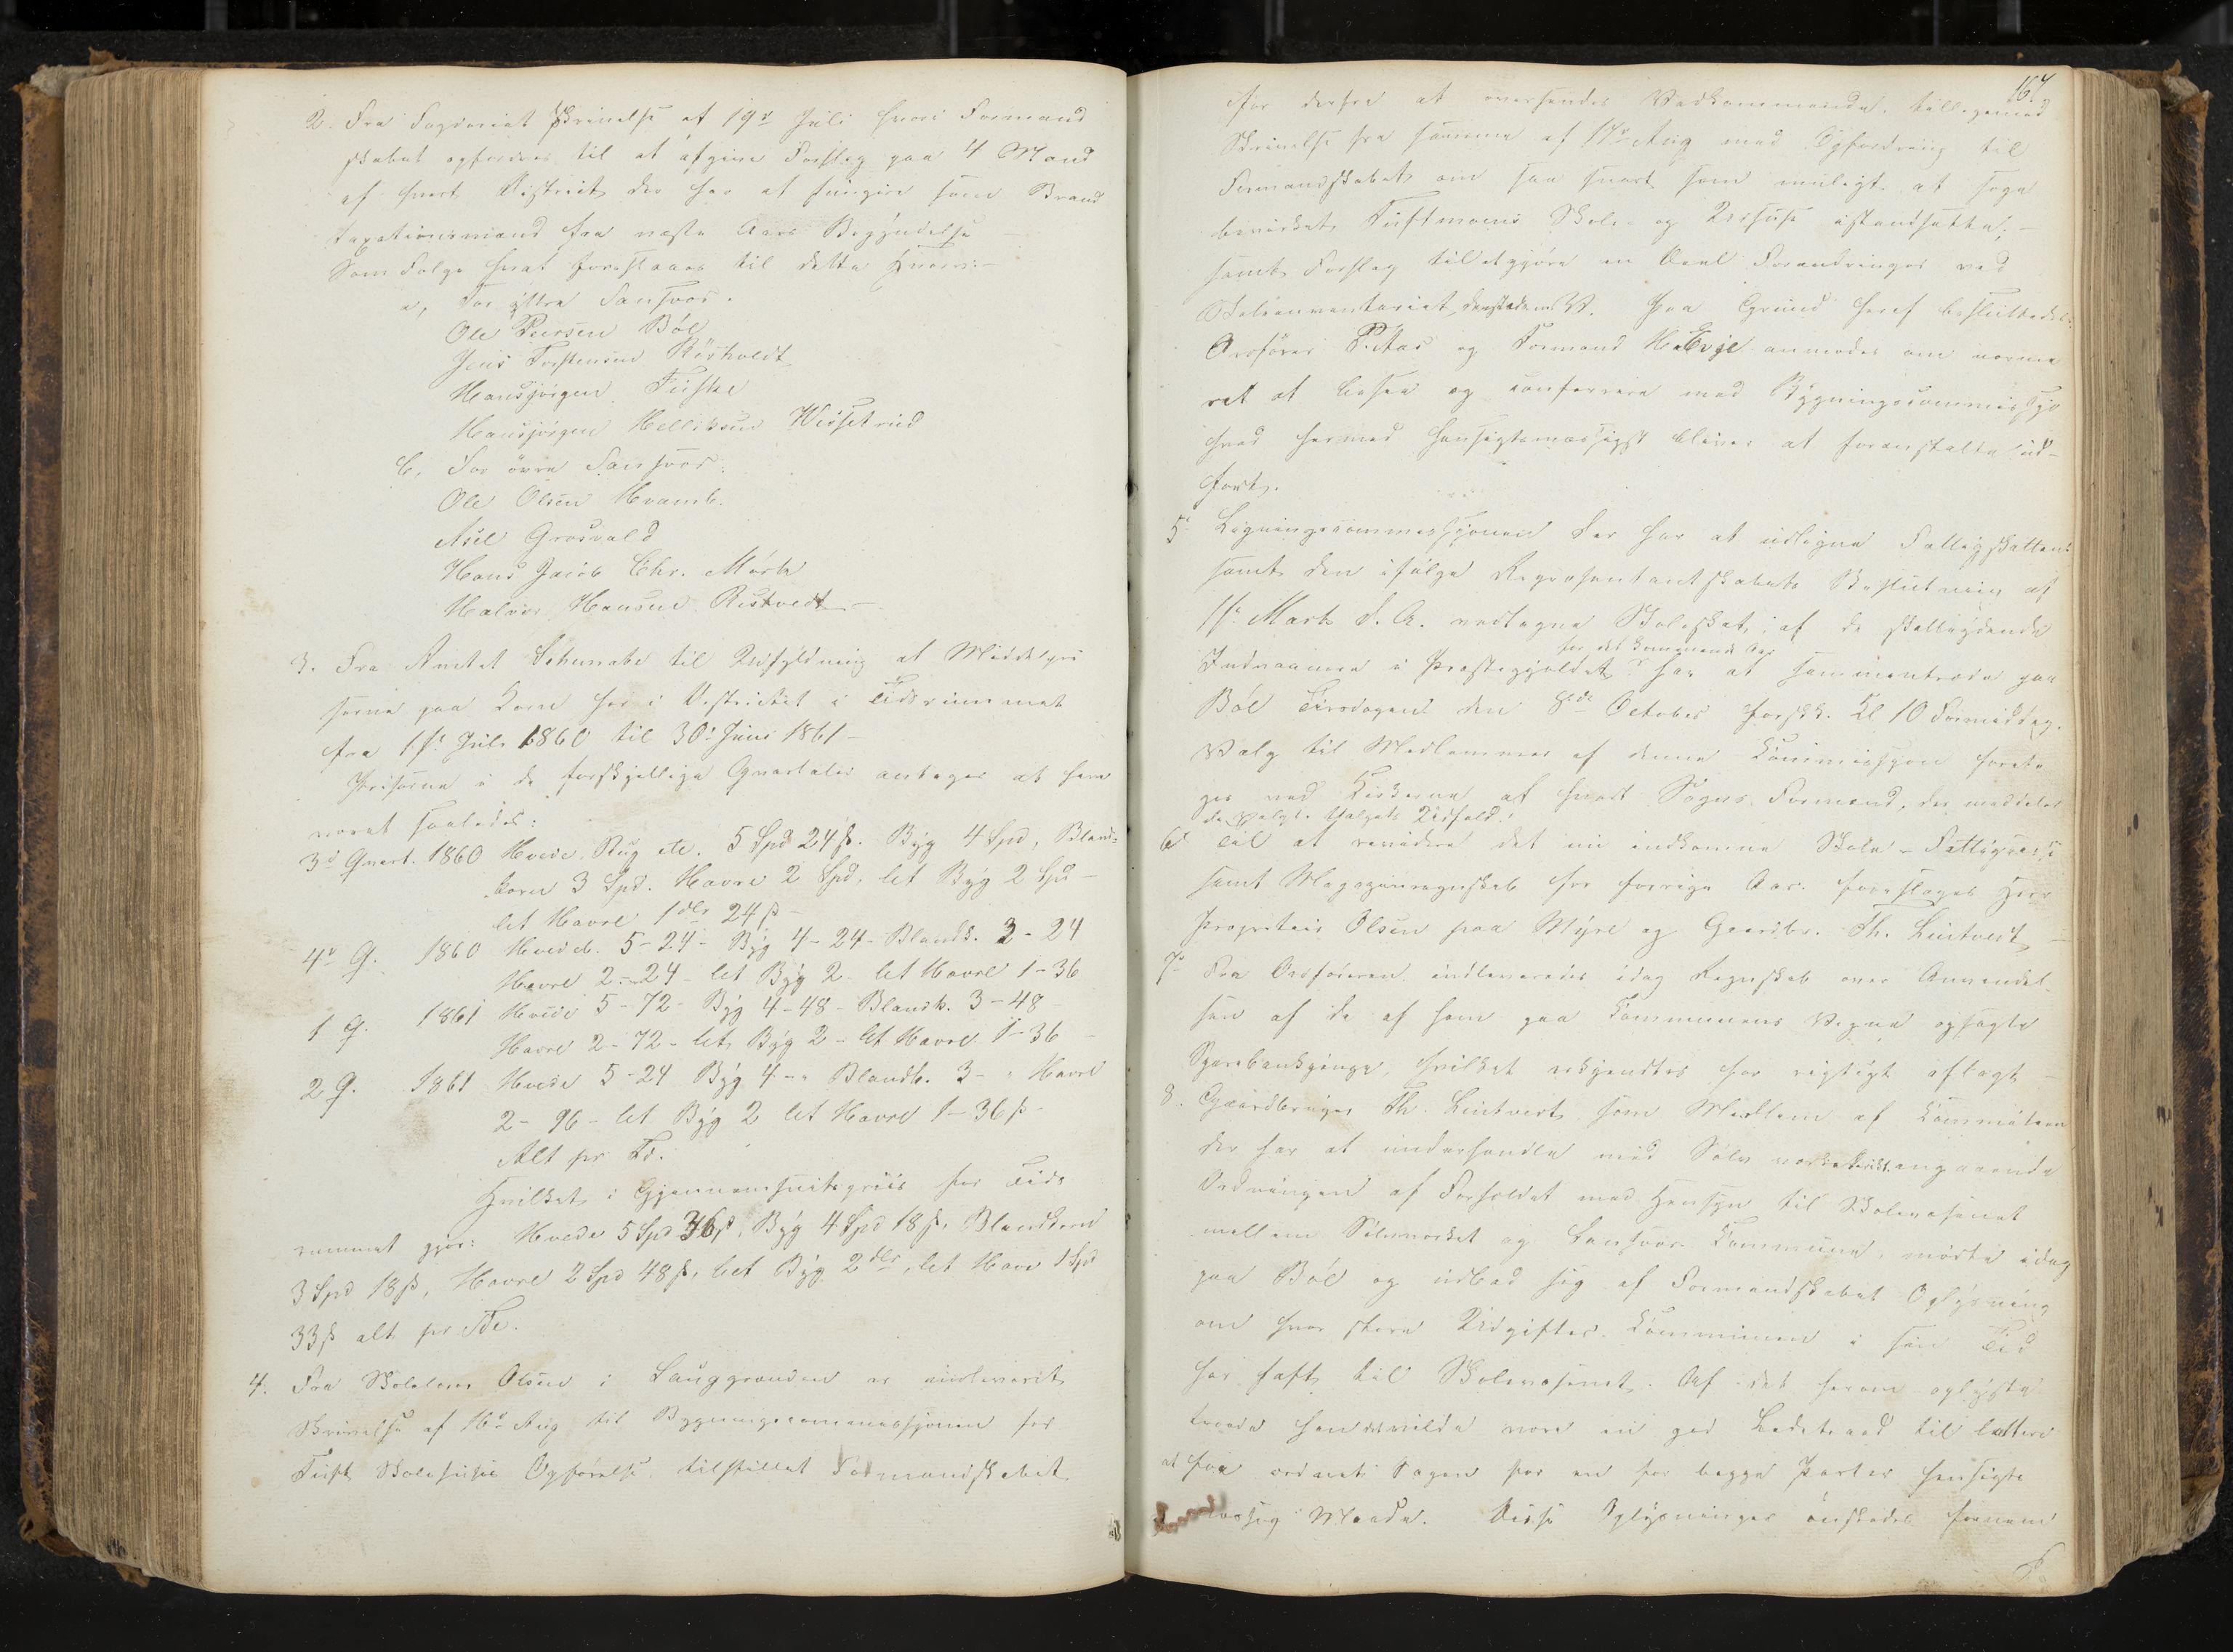 2. Fra Fogderiet Skrivelse af 19de Juli hvori Formand
skabet opfordres til at afgive Forslag paa 4 Mænd
af hvert District der har at fungere som Brand
taxationsmænd fra næste Aars Begyndelse
Som Følge heraf foreslaaes til dette Hverv:-
a, For ytre Sandsvær.
Ole Peersen Böle
Jens Torstensen
Hansjörgen Tufte
Hansjörgen Helliksen
b, For övre Sandsvær.
Ole Olsen Hvamb.
Axel Grosvald
Hans Jacob Chr. Mörk
Halvor Hansen Ristvedt -
3. Fra Amtet Schemata til Udfyldning af Middelpri
serne paa Korn her i Districtet i Tidsrummet
fra 1ste Juli 1860 til 30te Juni 1861 -
Priserne i de forskjellige Qvartaler antages at have
været saaledes:
3d Qvart. 1860 Hvede, Rug etc. 5 Spd 24 ß. Byg 4 Spd, Bland-
korn 3 Spd. Havre 2 Spd, let Byg 2 Spd -
let Havre 1 dlr 24 ß -
4de Q. 1860 Hvede 5-24- Byg 4-24- Blandk. 3-24
Havre 2-24- let Byg 2- let Havre 1-36
1 Q. 1861 Hvede 5-72- Byg 4-48- Blandk. 3-48 -
Havre 2-72- let Byg 2- let Havre 1-36 -
2 Q. 1861 Hvede 5-24 Byg 4-" Blandk. 3-" Havre
2-96- let Byg 2 let Havre 1-36 ß -
Alt pr Td.
Hvilket i Gjennemsnitspriis for Tids
rummet gjør: Hvede 5 Spd 36 ß, Byg 4 Spd 18 ß, Blandkorn
3 Spd 18 ß, Havre 2 Spd 48 ß, let Byg 2 dlr, let Havre 1 Spd
33 ß alt pr Tde.
4. Fra Skolelærer Olsen i Lauggrenden er indleveret
Skrivelse af 16de Aug til Bygningscommissjonen for
Tufte Skolehuses Opførelse, tilstillet Formandskabet
167
for derfra at oversendes Vedkommende, tilligemed
Skrivelse fra samme af 17de Aug med Opfordring til
Formandskabet om saa snart som muligt at søge
bevirket Tuftmoens Skole- og Udhuse istandsatte, -
samt Forslag til at gjöre en Deel Forandringer ved
Skoleinventariet dersteds. Paa Grund heraf besluttedes:
Ordfører P. Aas og Formand H. Evje anmodes om nærme
ret at besee og conferrere med Bygningscommissjo
hvad hermed hensigtsmæssigst bliver at foranstalte ud-
fört.
5te Ligningscommissjonen der har at udligne Fattigskatten
samt den ifølge Repræsentantskabets Beslutning af
1ste Marts d. A. vedtagne Skoleskat, af de skattydende
for det kommende Aar
Indvaanere i Præstegjeldet har at sammentræde paa
Böle Tirsdagen den 8de October førstk. Kl 10 Formiddag.
Valg til Medlemmer af denne Kommissjon foreta
ges ved Kirkerne af hvert Sogns Formænd, der meddeler
de Valgte Valgets Udfald.
6te Til at revidere det nu indkomne Skole-Fattigvæsens
samt Magazinregnskab for forrige Aar foreslaaes Herr
Proprietair Olsen paa Myre og Gaardbr. Th. Lintvedt -
7de Fra Ordföreren indleveredes idag Regnskab over Anvendel-
sen af de af ham paa Kommunens Vegne opsagte
Sparebankpenge, hvilket erkjendtes for rigtigt aflagt -
8. Gaardbruger Th. Lintvedt som Medlem af Kommiteen
der har at underhandle med Sølvværks District angaaende
Ordningen af Forholdet med Hensyn til Skolevæsenet
mellem Sölvværket og Sandsvær Kommune, mödte idag
paa Böle og udbad sig af Formandskabet Oplysning
om hvor store Udgifter Kommunen i sin Tid
har haft til Skolevæsenet. Af det herom oplyste
troede han det vilde være en god Ledetraad til lettere
at faa ordnet Sagen paa en for begge Parter hensigts
mæssig Maade. Disse Oplysninger önskedes